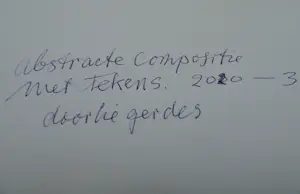 abstracte compositie
met tekens. 2020 – 3
doorlie gerdes